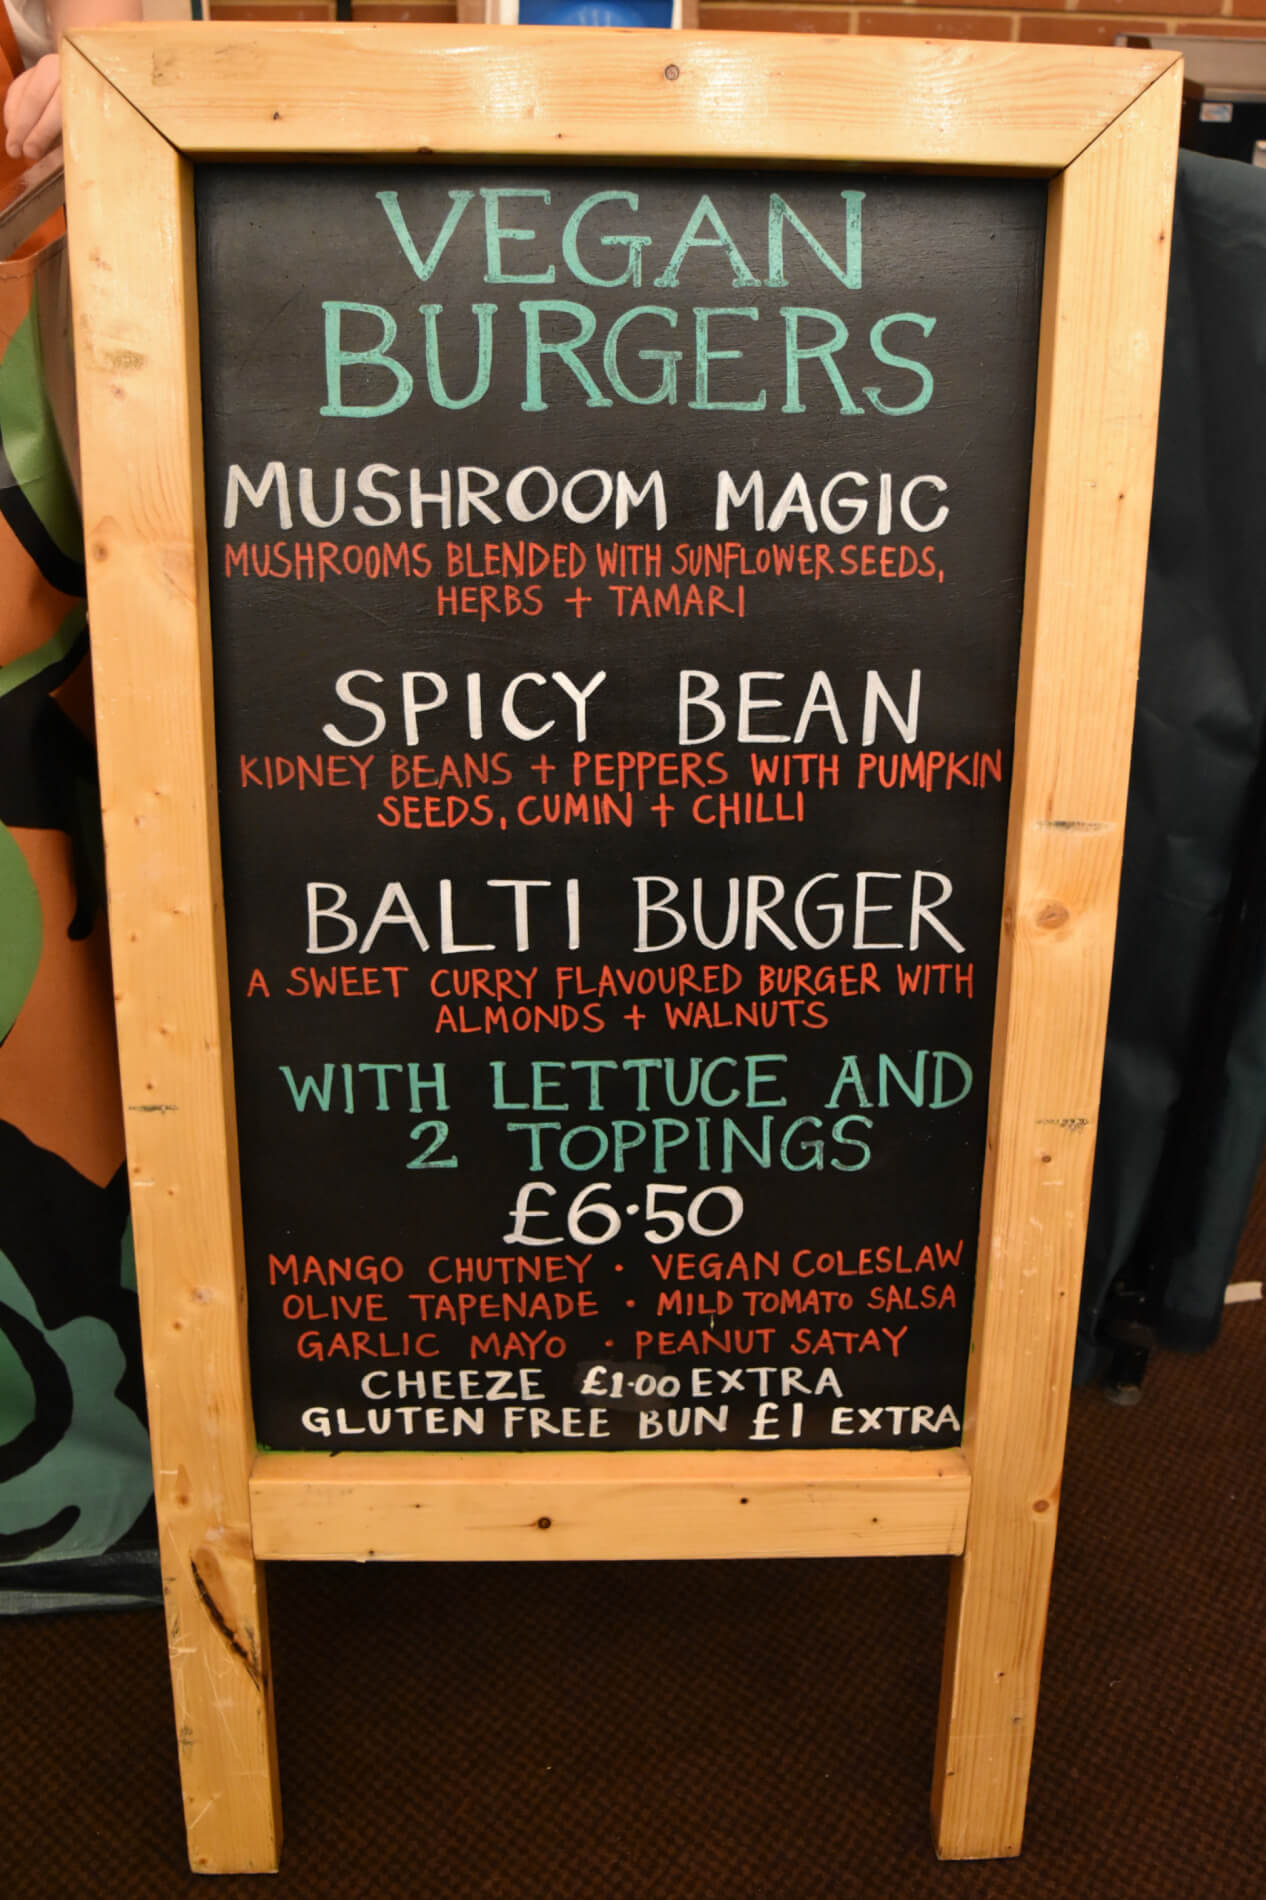 VEGAN
BURGERS
MUSHROOM MAGIC
MUSHROOMS BLENDED WITH SUNFLOWER SEEDS,
HERBS + TAMARI
SPICY BEAN
KIDNEY BEANS + PEPPERS WITH PUMPKIN
SEEDS, CUMIN + CHILLI
BALTI BURGER
A SWEET CURRY FLAVOURED BURGER WITH
ALMONDS + WALNUTS
WITH LETTUCE AND
2 TOPPINGS
£6·50
MANGO CHUTNEY · VEGAN COLESLAW
OLIVE TAPENADE · MILD TOMATO SALSA
GARLIC MAYO · PEANUT SATAY
CHEEZE £1·00 EXTRA
GLUTEN FREE BUN £1 EXTRA